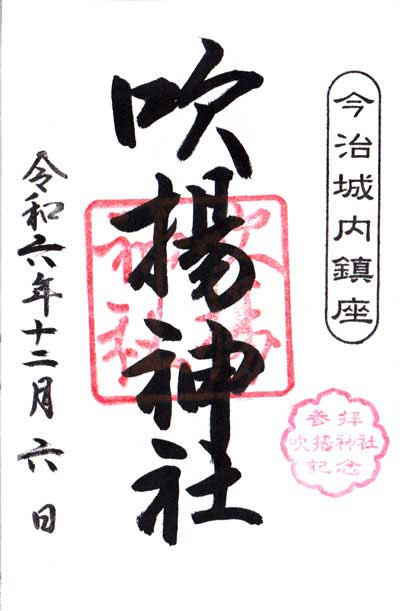 今治城内鎮座
吹揚神社
吹揚
神社
令和六年十二月六日
参拝
吹揚神社
記念